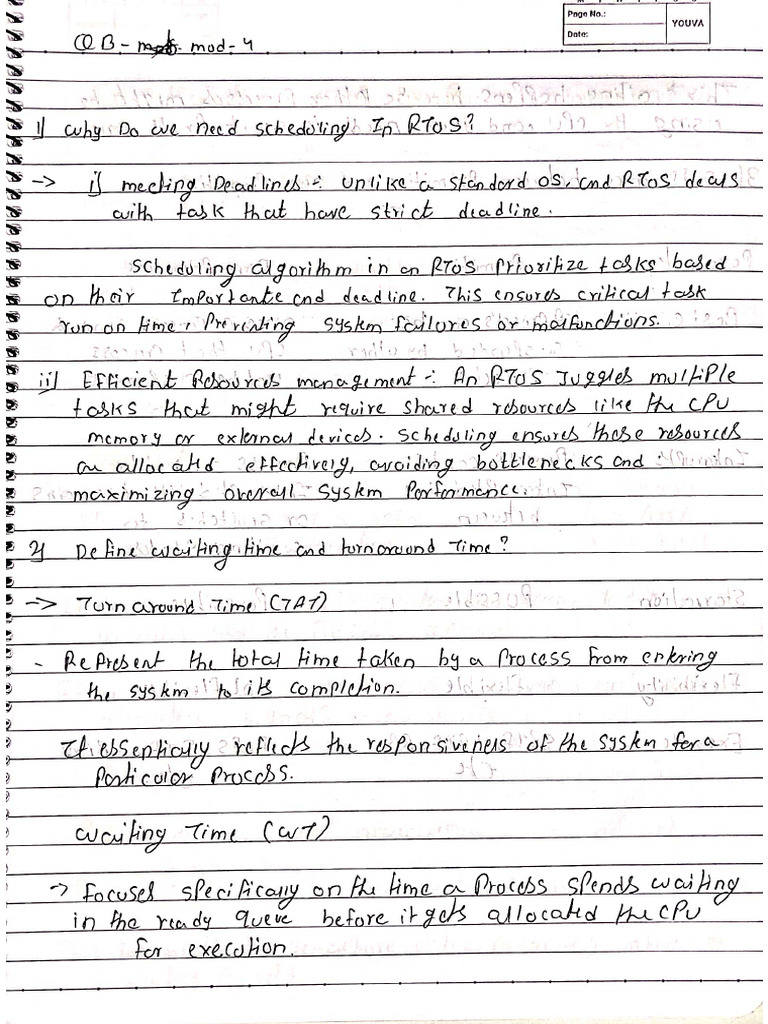 Page No.:
Date:
YOUVA
QB - mod - 4
1) Why Do we need scheduling In RTOS?
-> i) meeting Deadlines :- unlike a standard OS, and RTOS deals
with task that have strict deadline.
scheduling algorithm in an RTOS Prioritize tasks based
on their Importante and deadline. This ensures critical task
run on time, Preventing system failures or malfunctions.
ii) Efficient Resources management :- An RTOS Juggles multiple
tasks that might require shared resources like the CPU
memory or external devices. scheduling ensures these resources
are allocated effectively, avoiding bottlenecks and
maximizing overall system Performance.
2) Define waiting time and turnaround Time?
-> Turn around Time (TAT)
- Represent the total time taken by a Process from entering
the system to its completion.
It essentially reflects the responsiveness of the system for a
Particular Process.
Waiting Time (WT)
-> focuses specifically on the time a Process spends waiting
in the ready queue before it gets allocated the CPU
for execution.